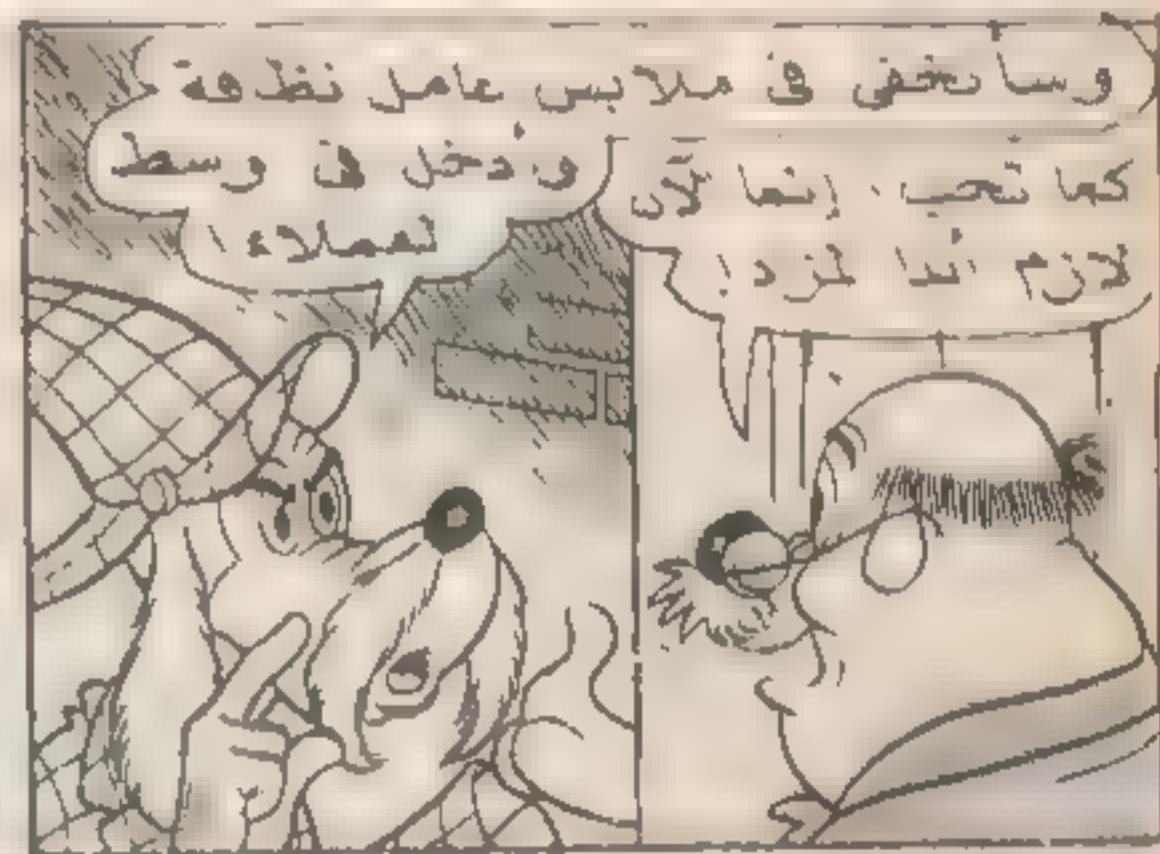 وسأتخفى فى ملابس عامل نظافة
وأدخل فى وسط
العملاء
كما تحب . إنما الآن
لازم نبدأ المزاد !